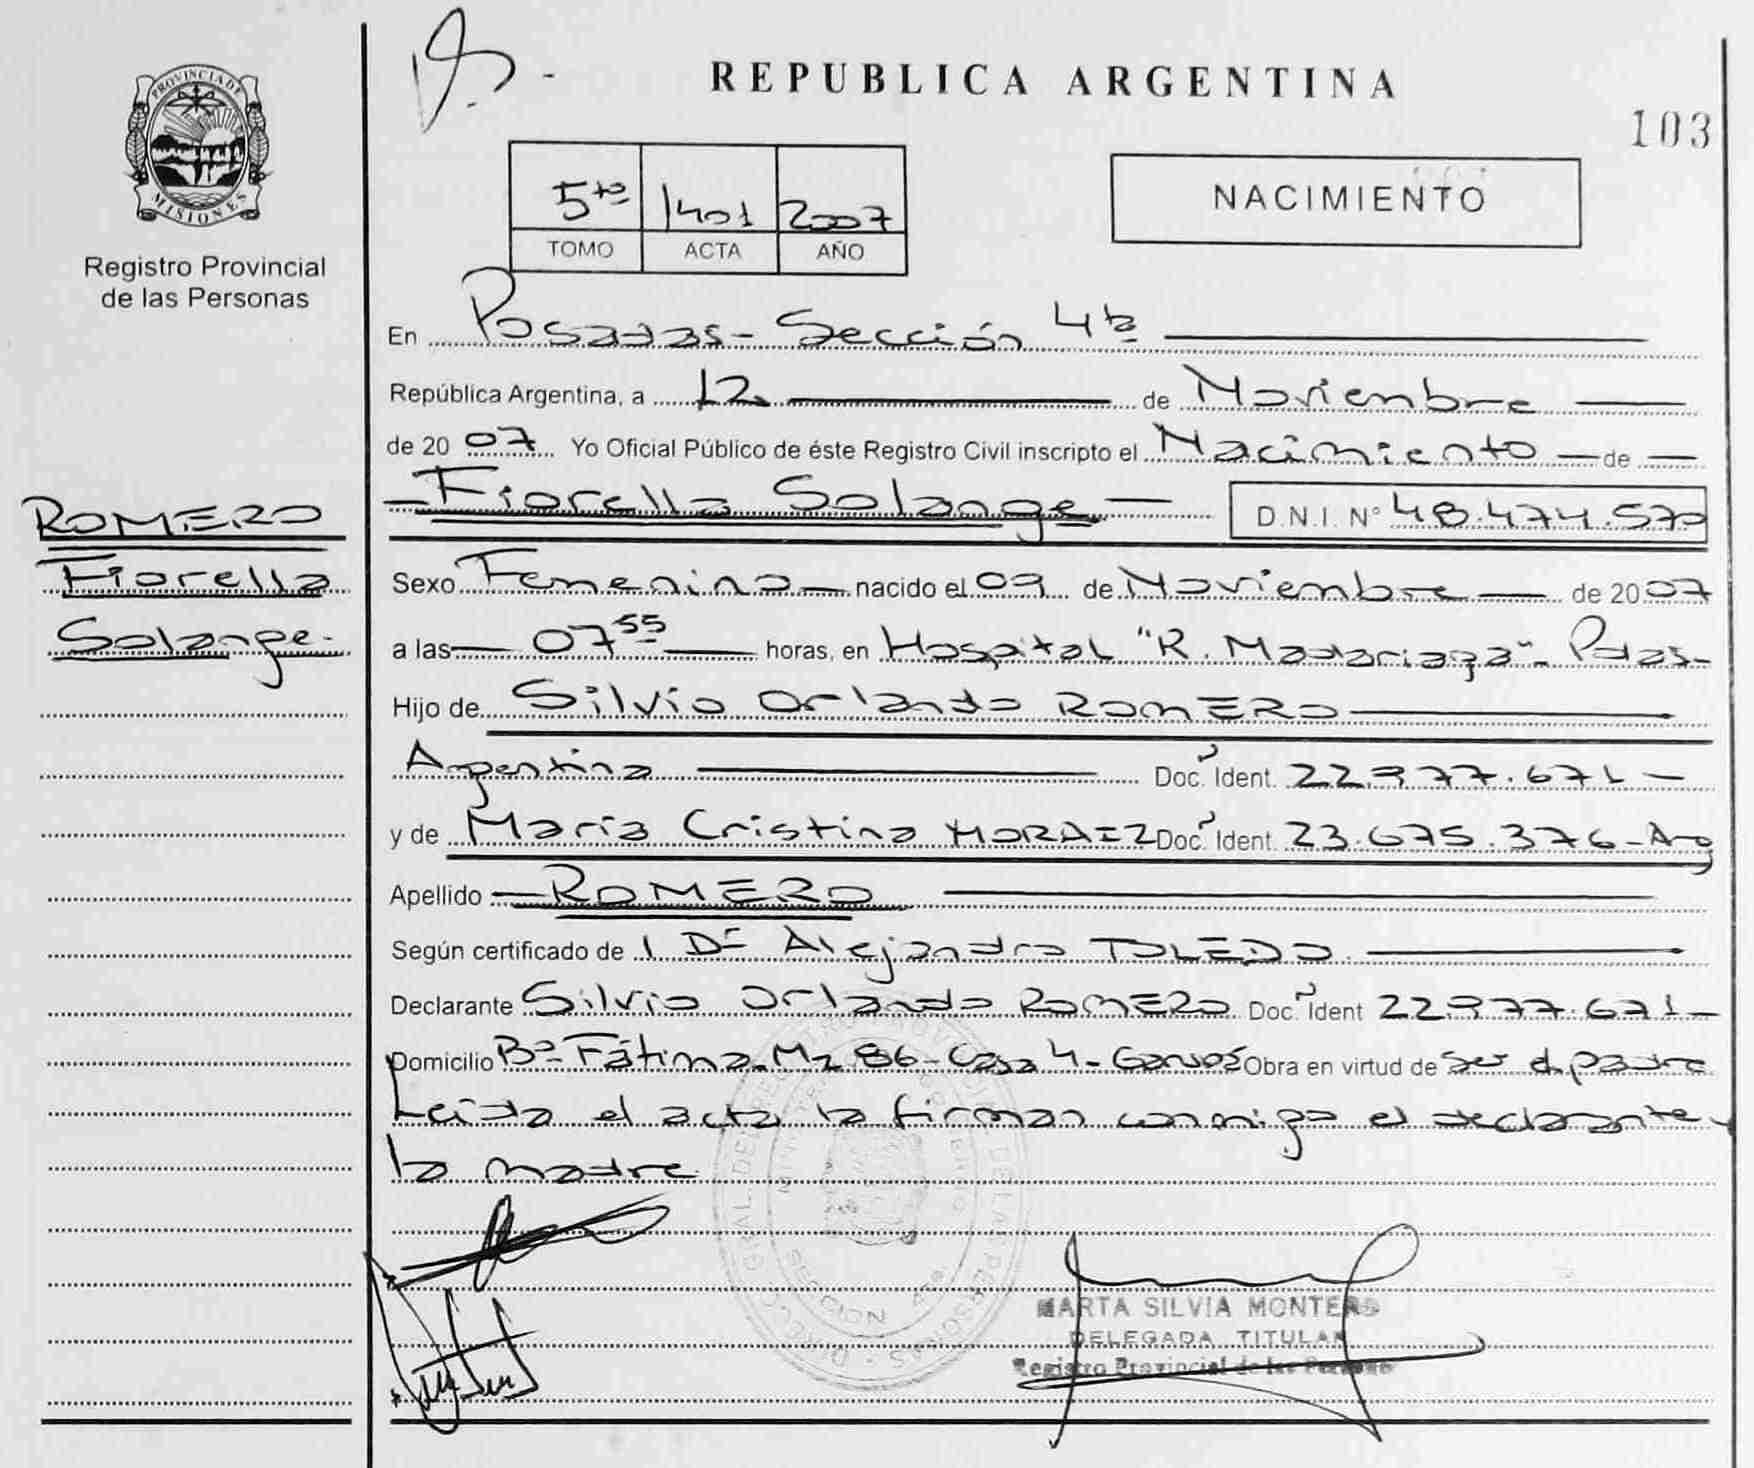 PROVINCIA DE
MISIONES
Registro Provincial
de las Personas
ROMERO
Fiorella
Solange.-
REPUBLICA ARGENTINA
103
5to 1401 2007
TOMO ACTA AÑO
NACIMIENTO
En Posadas - Sección 4ta
República Argentina, a 12 de Noviembre
de 2007 Yo Oficial Público de éste Registro Civil inscripto el Nacimiento de
Fiorella Solange D.N.I. N° 48.474.570
Sexo Femenino nacido el 09 de Noviembre de 2007
a las 07 55 horas, en Hospital "R. Madariaga" - Pdas-
Hijo de Silvio Orlando ROMERO
Argentina Doc. Ident. 22.977.671 -
y de María Cristina MORAEZ Doc. Ident. 23.675.376 - Arg
Apellido ROMERO
Según certificado de 1 Dr Alejandro TOLEDO
Declarante Silvio Orlando ROMERO Doc. Ident 22.977.671 -
Domicilio Bº Fátima - Mz 86 - Casa 4 - Garupá Obra en virtud de ser el padre
Leída el acta la firman conmigo el declarante y
la madre
MARTA SILVIA MONTERO
DELEGADA TITULAR
Registro Provincial de las Personas